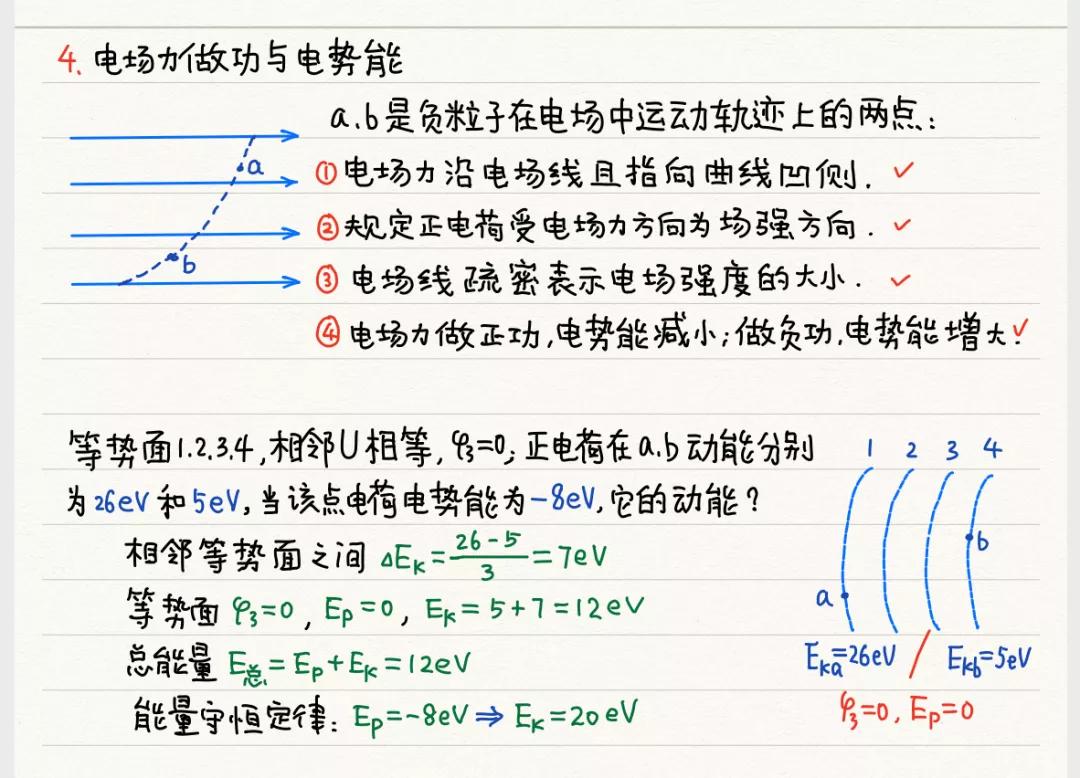 4. 电场力做功与电势能
a.b是负粒子在电场中运动轨迹上的两点:
a
①电场力沿电场线且指向曲线凹侧. ✓
②规定正电荷受电场力方向为场强方向. ✓
b
③电场线疏密表示电场强度的大小. ✓
④电场力做正功,电势能减小;做负功,电势能增大. ✓
等势面1.2.3.4,相邻U相等,φ₃=0,正电荷在a.b动能分别
为26eV和5eV,当该点电荷电势能为-8eV,它的动能?
1 2 3 4
相邻等势面之间 ΔEₖ=(26-5)/3=7eV
b
等势面 φ₃=0, Eₚ=0, Eₖ=5+7=12eV
a
总能量 E总=Eₚ+Eₖ=12eV
Eₖₐ=26eV / E_kb=5eV
能量守恒定律: Eₚ=-8eV⇒Eₖ=20eV
φ₃=0, Eₚ=0